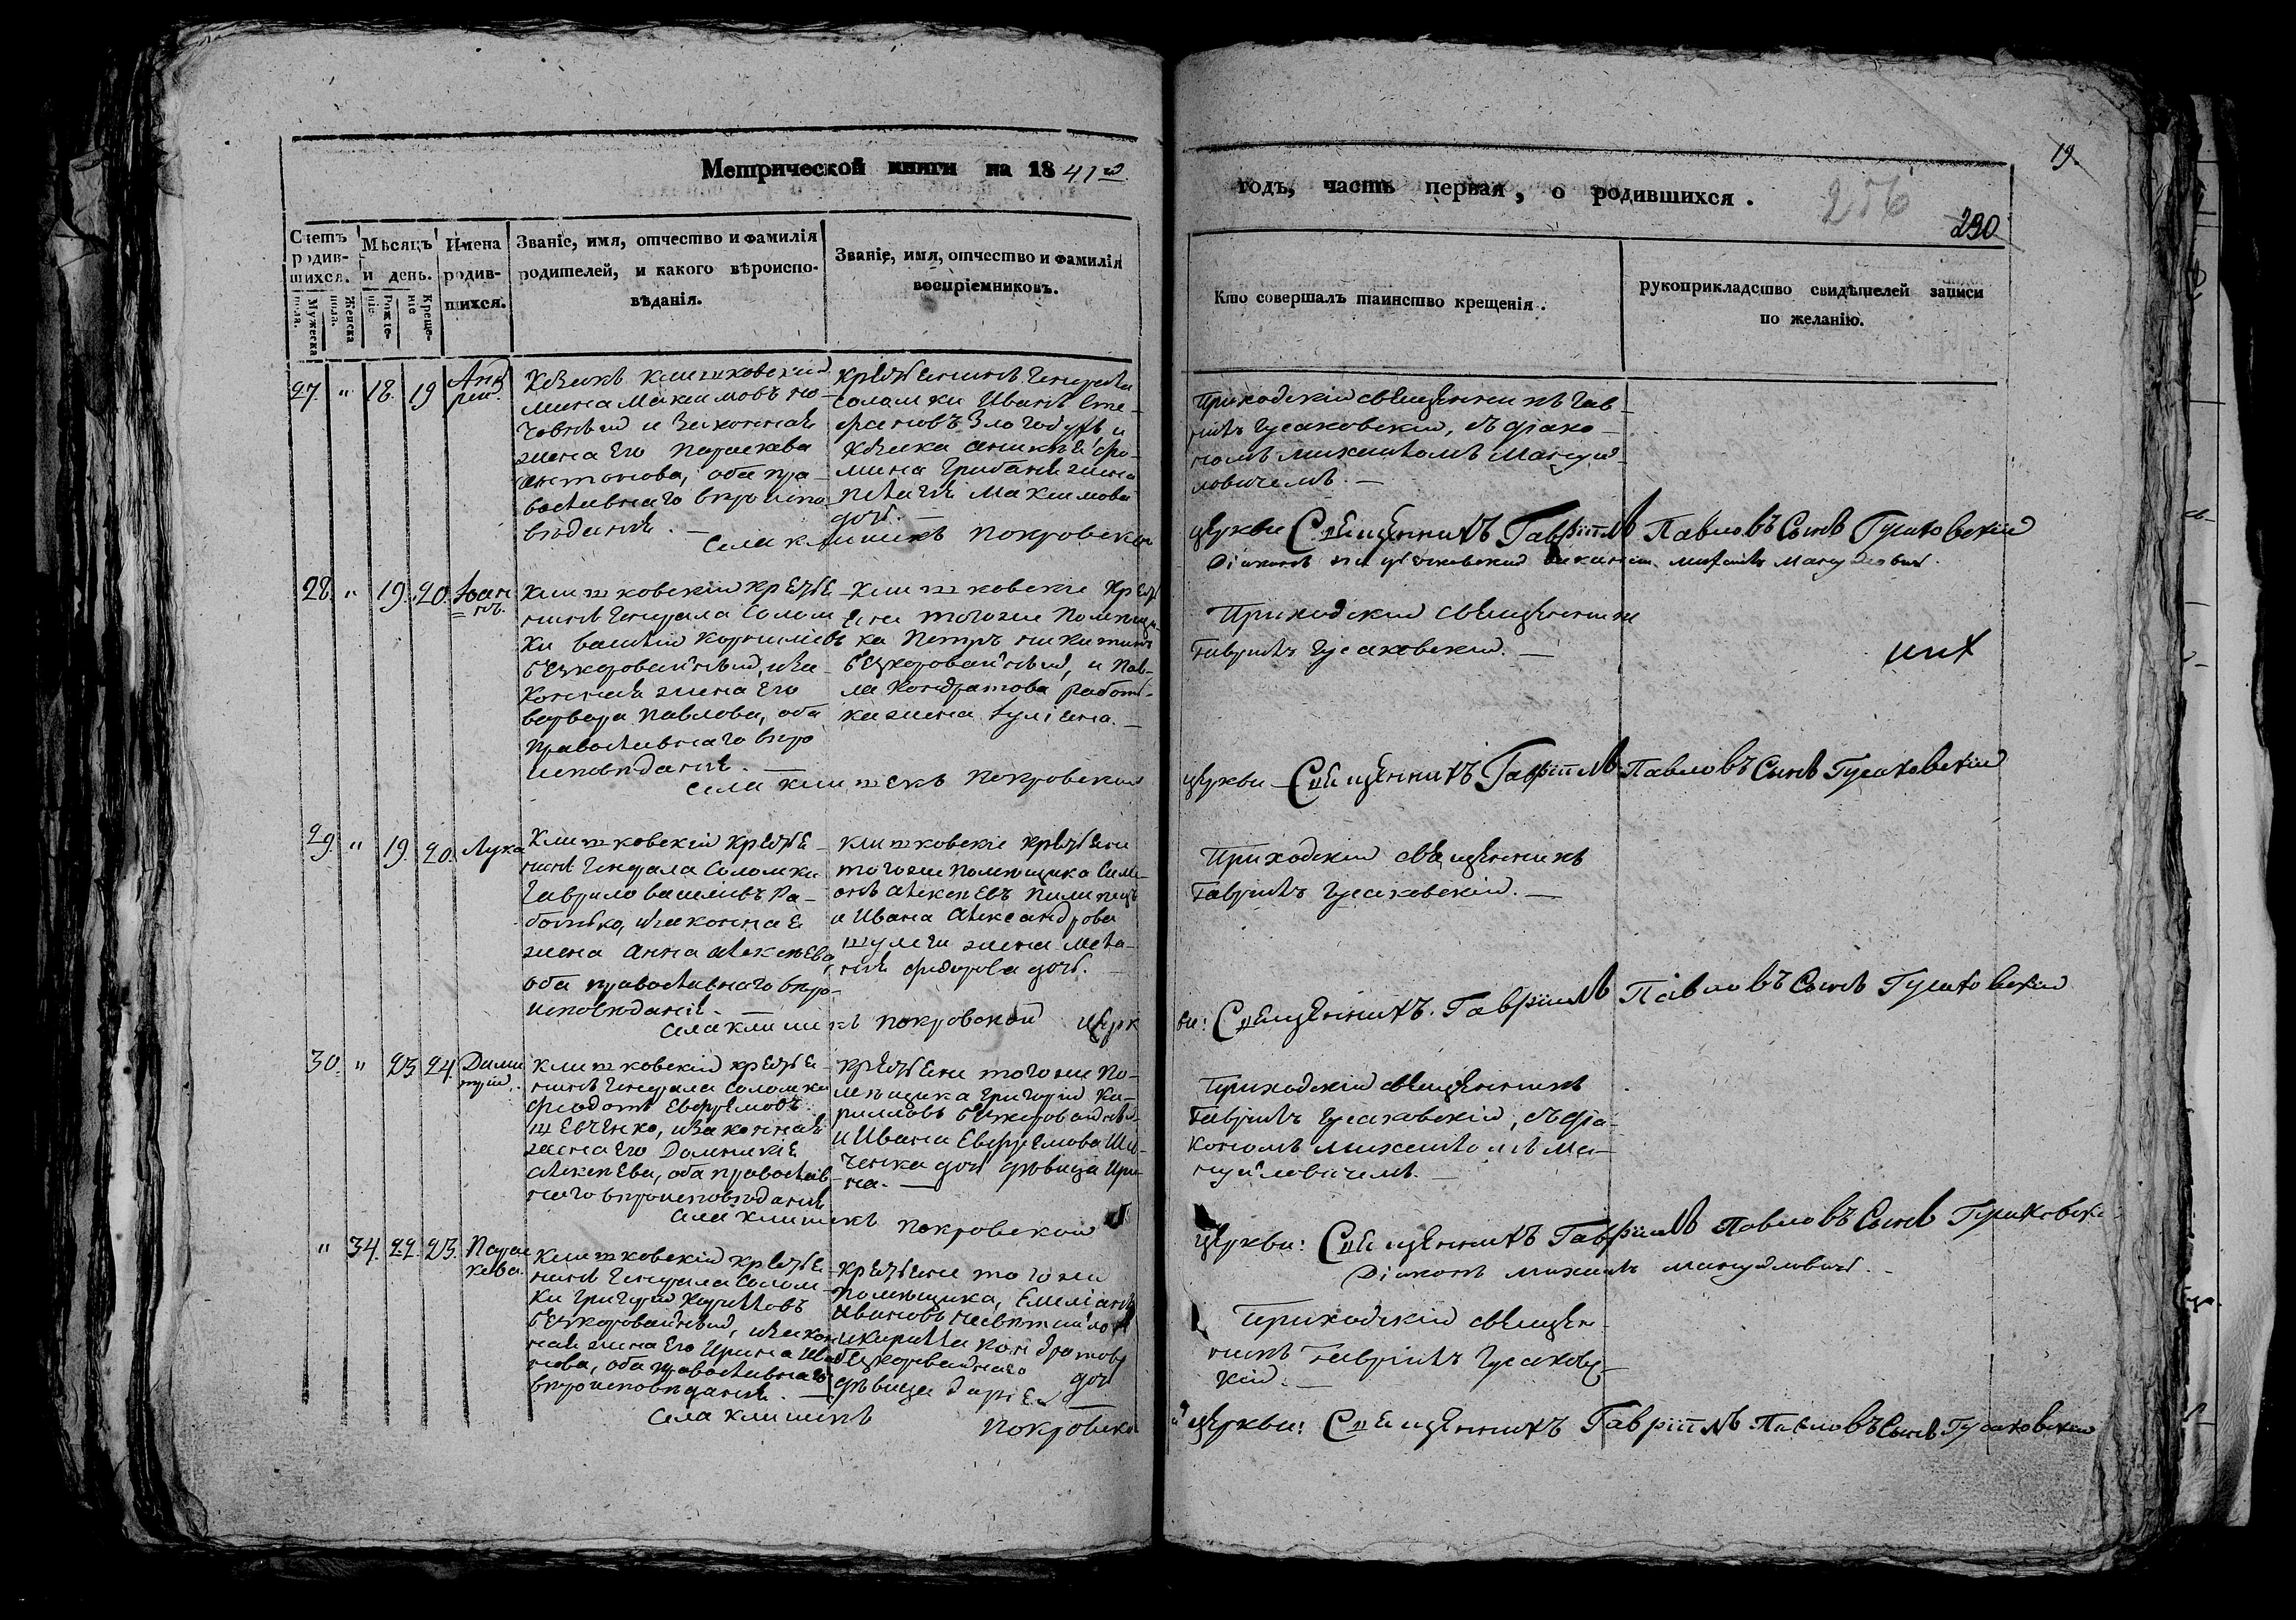 Метрической книги на 1841го
годъ, часть первая, о родившихся.
19.
256
290
Счетъ родившихся.
Мужеска пола.
Женска пола.
Мѣсяцъ и день.
Рожденіе.
Крещеніе
Имена родившихся.
Званіе, имя, отчество и фамилія
родителей, и какого вѣроиспо-
вѣданія.
Званіе, имя, отчество и фамилія
воспріемниковъ.
Кто совершалъ таинство крещенія.
рукоприкладство свидѣтелей записи
по желанію.
27. " 18. 19 Анд
рей.
Козакъ клишковскій
мина Максимовъ
и законная
жена его Параскева
Антонова, оба пра-
вославнаго вѣроиспо
вѣданія. —
крестьянинъ Генерала
Соломки Иванъ Сте-
фановъ и
Козака
мина Грибана жена
Пелагія Максимова
дочь. —
Приходскій священникъ Гав-
ріилъ Гусаковскій, съ діако-
номъ михаиломъ Мануй-
ловичемъ. —
Села клишокъ Покровской
церкви Священникъ Гавріилъ Павловъ Сынъ Гусаковскій
Діаконъ михаилъ Мануйловичъ.
28 " 19. 20. Іоан
нъ.
Клишковскій кресть
нинъ Генерала Солом
ки василій Корниліевъ
безкоровайный, и за
конная жена его
варвара Павлова, оба
православнаго вѣро
исповѣданія. —
Клишковскіе крест
яне тогоже Помѣщи-
ка Петръ никитинъ
безкоровайный, и Пав-
ла Кондратова работь-
ка жена Іуліана. —
Приходскій священникъ
Гавріилъ Гусаковскій. —
Села клишекъ Покровской
церкви Священникъ Гавріилъ Павловъ Сынъ Гусаковскій
29. " 19. 20. Лука
Клишковскій кресть
нинъ Генерала Соломки
Гаврило василіевъ Ра-
ботько, и законная
жена Анна Алексѣева,
оба православнаго вѣро-
исповѣданія. —
клишковскіе крестьяне
тогоже помѣщика Симе-
онъ Алексѣевъ Пилипецъ
и Ивана Александрова
шулги жена Мела-
нія Федорова дочь. —
Приходскій священникъ
Гавріилъ Гусаковскій. —
Села клишкъ Покровской церк
ви: Священникъ Гавріилъ Павловъ Сынъ Гусаковскій
30. " 23 24. Дими
трій.
клишковскій кресть
нинъ Генерала Соломки
Феодотъ Евфремовъ
Шевченко, и законная
жена его Домникія
Алексѣева, оба православ
наго вѣроисповѣданія
крестьяне тогоже По-
мѣщика Григорій Ки-
рилловъ безкоровайный
и Ивана Евфремова Шев
ченка дочь дѣвица Ири-
на. —
Приходскій священникъ
Гавріилъ Гусаковскій, съ діа-
кономъ михаиломъ Ма-
нуйловичемъ. —
Села клишкъ Покровской
церкви: Священникъ Гавріилъ Павловъ Сынъ Гусаковскі
Діаконъ михаилъ мануйловичъ. —
" 34. 22. 23. Парас
кева.
клишковскій кресть
нинъ Генерала Солом-
ки Григорій Кирилловъ
безкоровайный, и закон
ная жена его Ирина Ива
нова, оба православнаго
вѣроисповѣданія. —
крестьяне тогоже
помѣщика, Емеліанъ
Ивановъ
и кирилла Кондратова
безкоровайнаго дочь
дѣвица Дарія —
Приходскій священ-
никъ Гавріилъ Гусаковс-
кій. —
Села клишкъ Покровско
й церкви: Священникъ Гавріилъ Павловъ Сынъ Гусаковскій